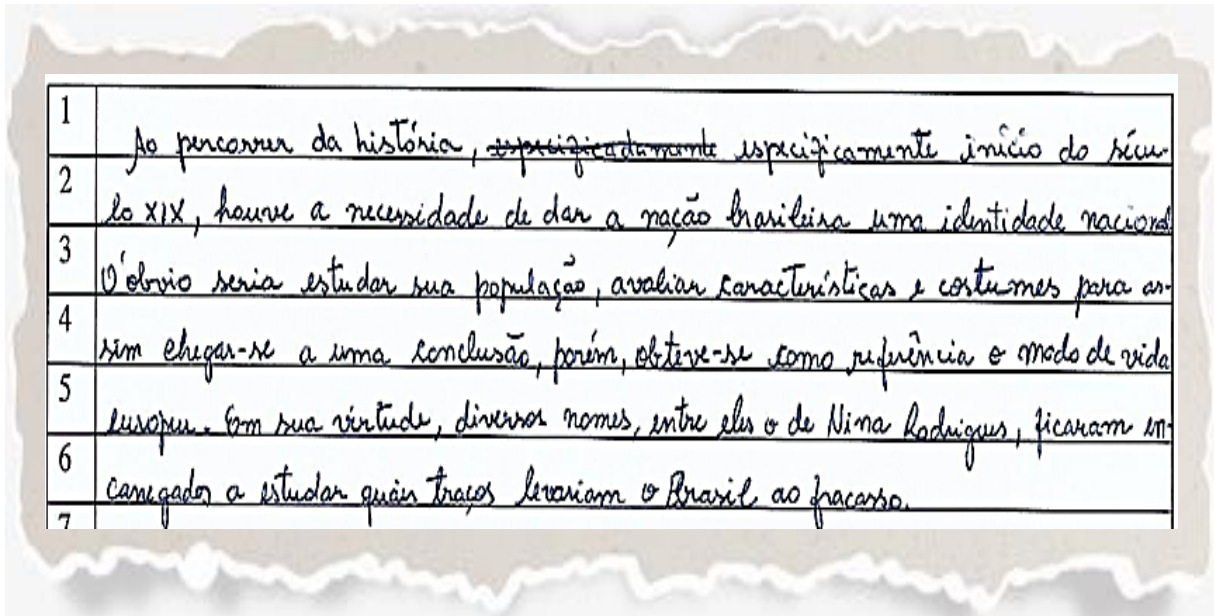 1 Ao percorrer da história, especificadamente especificamente início do sécu-
2 lo XIX, houve a necessidade de dar a nação brasileira uma identidade nacional.
3 O óbvio seria estudar sua população, avaliar características e costumes para as-
4 sim chegar-se a uma conclusão, porém, obteve-se como referência o modo de vida
5 europeu. Em sua virtude, diversos nomes, entre eles o de Nina Rodrigues, ficaram en-
6 carregados a estudar quais traços levariam o Brasil ao fracasso.
7